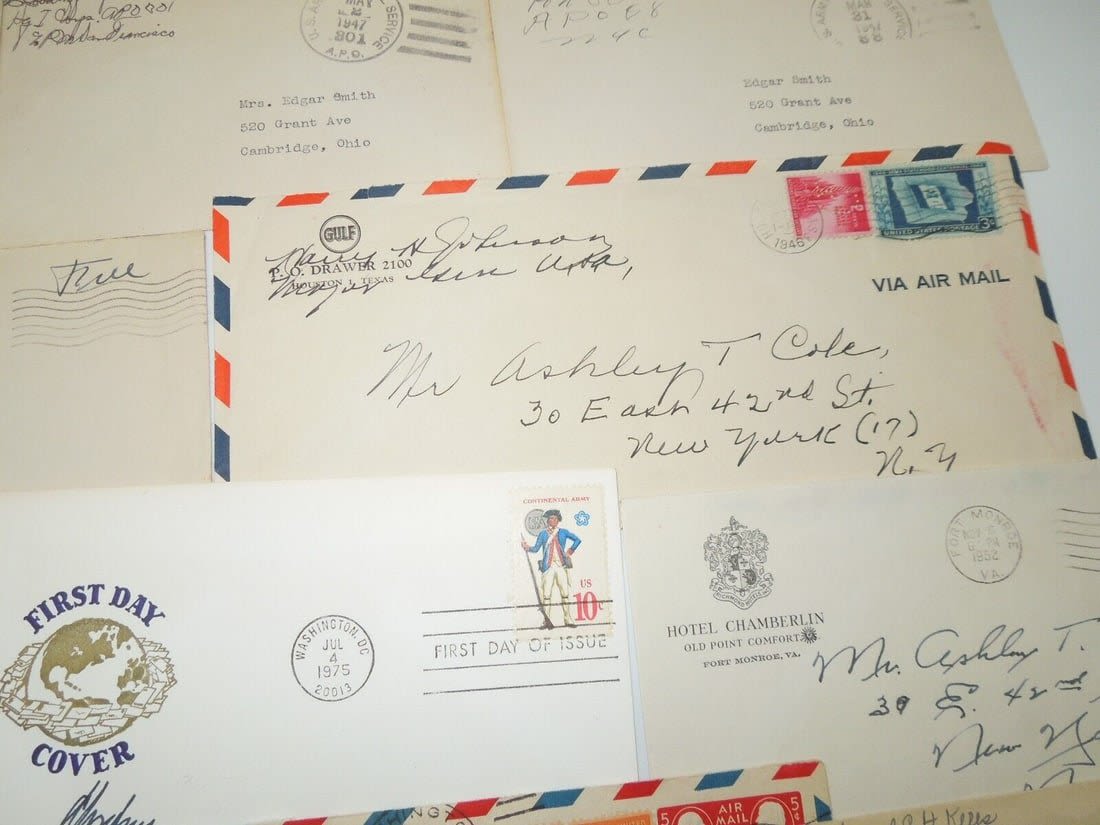 APO 801
San Francisco
U.S. ARMY
MAY
1947
801
A.P.O.
SERVICE
Mrs. Edgar Smith
520 Grant Ave
Cambridge, Ohio
APO
MAR
31
SERVICE
Edgar Smith
520 Grant Ave
Cambridge, Ohio
Free
GULF
P. O. DRAWER 2100
HOUSTON 1, TEXAS
Harry H. Johnson
Major Gen
1946
UNITED STATES POSTAGE 3¢
VIA AIR MAIL
Mr Ashley T Cole,
30 East 42nd St.
New York (17)
N.Y
FIRST DAY
COVER
WASHINGTON, DC
JUL
4
1975
20013
CONTINENTAL ARMY
US
10c
FIRST DAY OF ISSUE
RICHMOND HOTELS INC
HOTEL CHAMBERLIN
OLD POINT COMFORT
FORT MONROE, VA.
FORT MONROE
NOV
1952
VA.
Mr. Ashley T.
30 E. 42nd
New Yo
5¢
AIR
MAIL
5¢